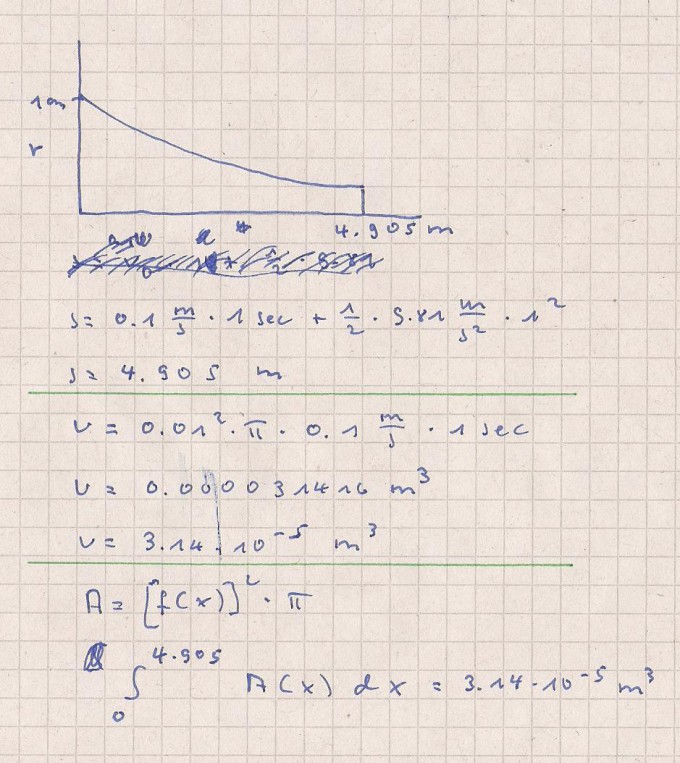 1 cm
r
4.905 m
s = 0.1 m/s · 1 sec + 1/2 · 9.81 m/s² · 1²
s = 4.905 m
V = 0.01² · π · 0.1 m/s · 1 sec
V = 0.000031416 m³
V = 3.14 · 10⁻⁵ m³
A = [f(x)]² · π
∫₀^4.905 A(x) dx = 3.14 · 10⁻⁵ m³